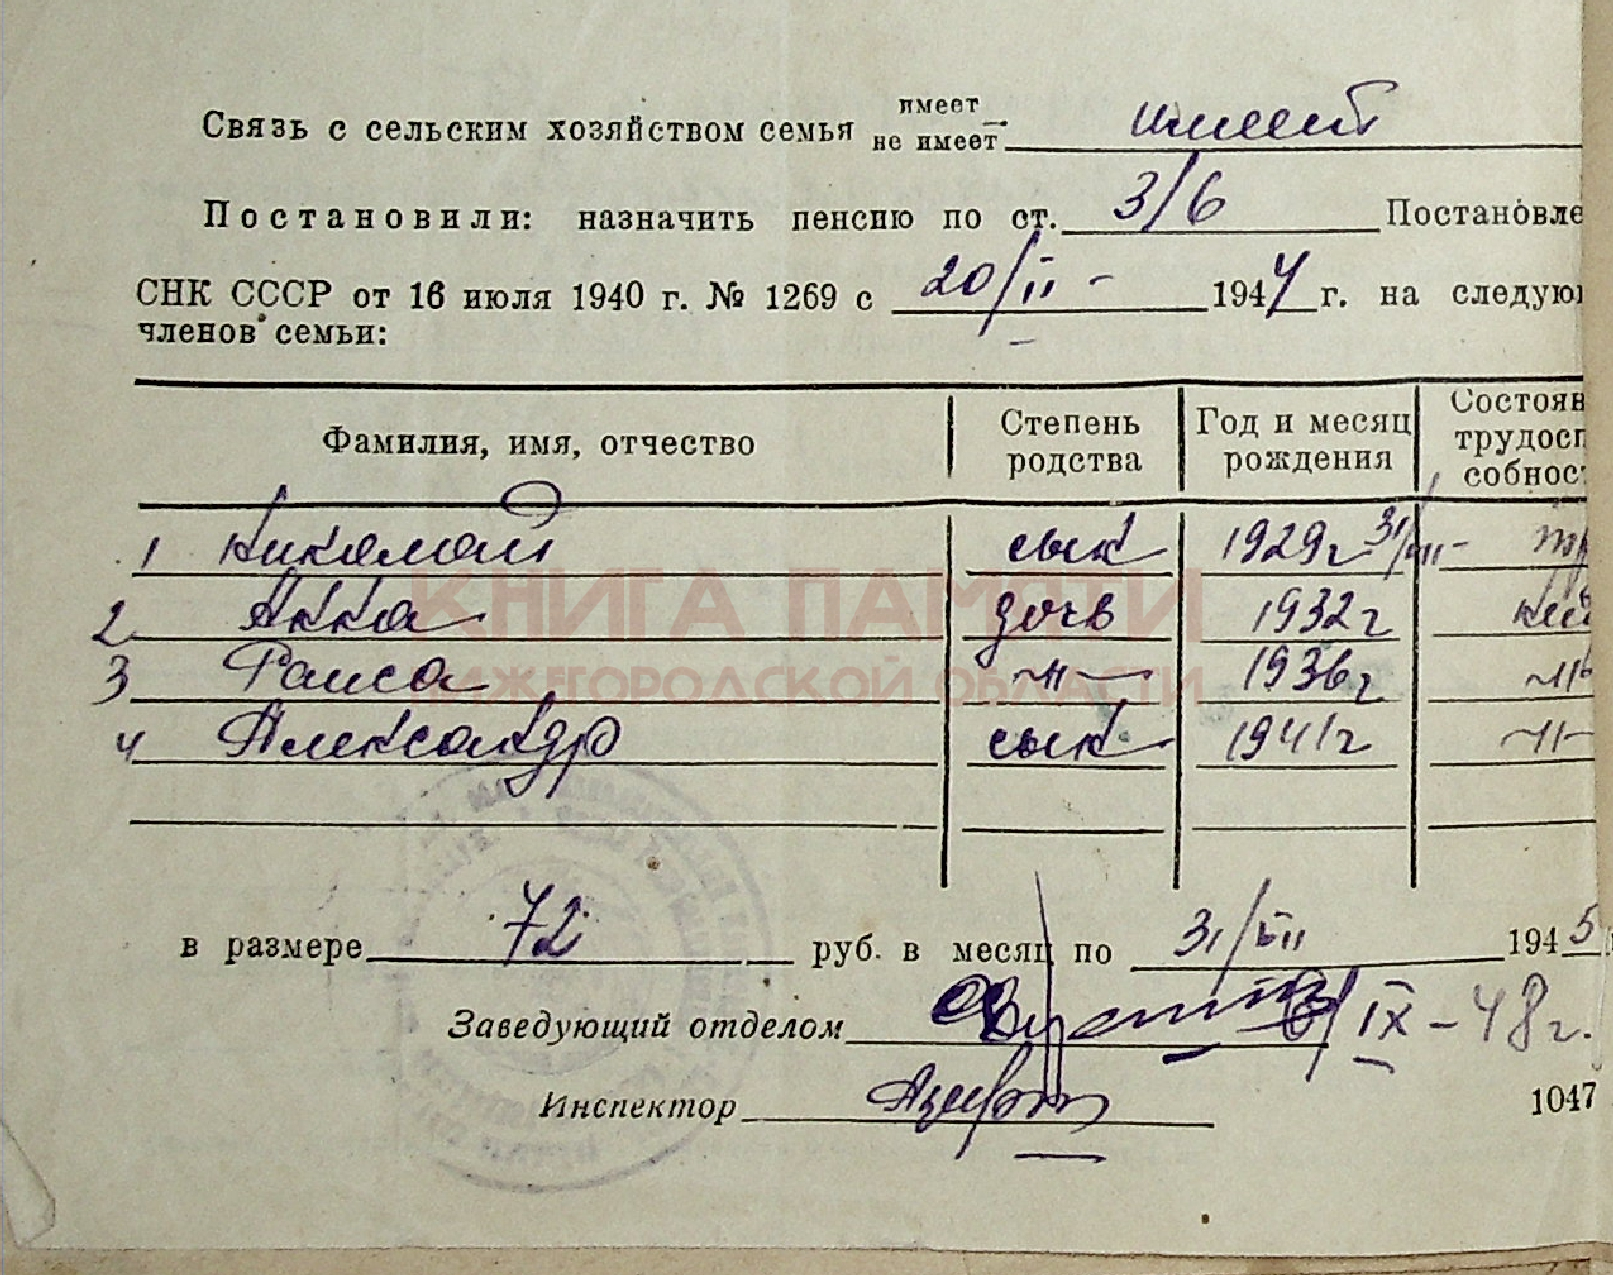 Связь с сельским хозяйством семья имеет не имеет имеет
Постановили: назначить пенсию по ст. 3/6 Постановле
СНК СССР от 16 июля 1940 г. № 1269 с 20/II - 1944 г. на следую
членов семьи:
Фамилия, имя, отчество Степень родства Год и месяц рождения Состоян трудосп собнос
1 Николай сын 1929г 31/VII - тр
2 Анна дочь 1932г
3 Раиса -"- 1936г -"-
4 Александр сын 1941г -"-
КНИГА ПАМЯТИ
НИЖЕГОРОДСКОЙ ОБЛАСТИ
в размере 72 руб. в месяц по 31/VII 1945
Заведующий отделом IX - 48г.
Инспектор 1047